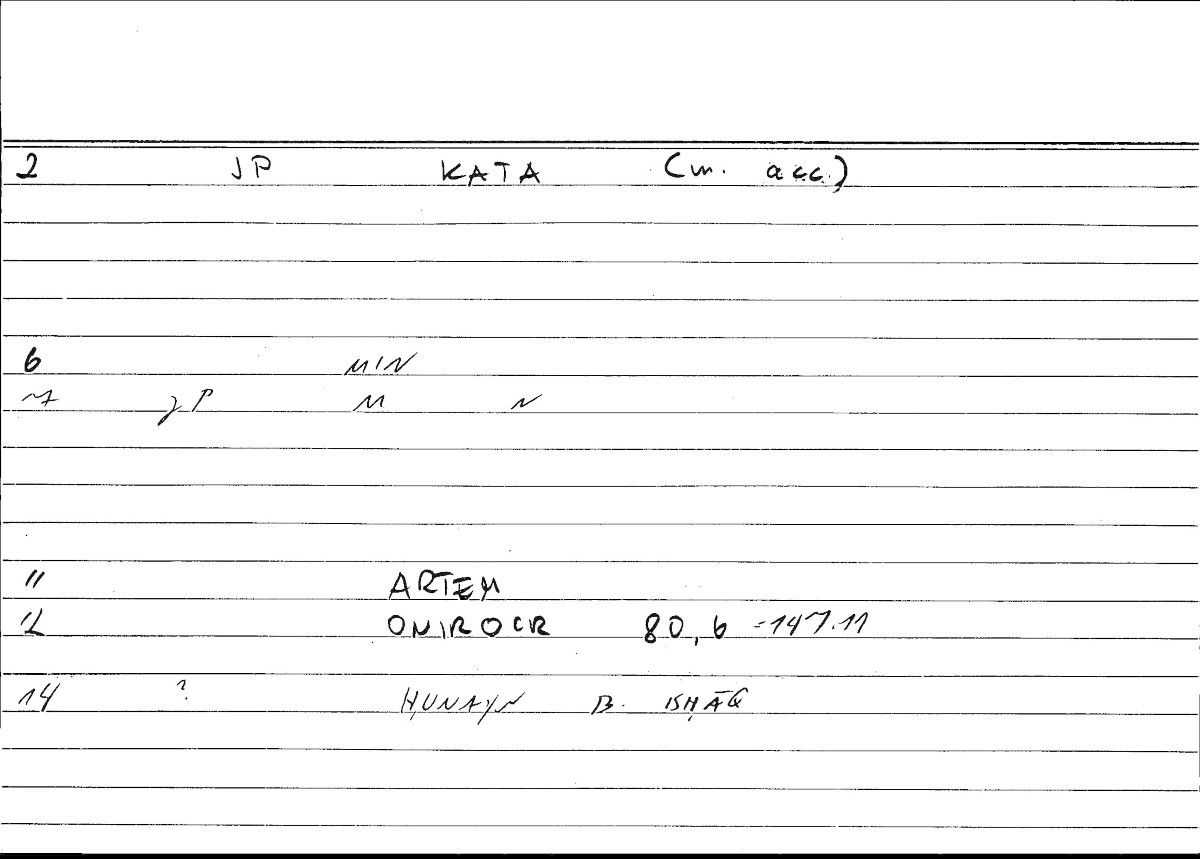 2 JP KATA (m. acc.)
6 MIN
7 JP M N
11 ARTEM
12 ONIROCR 80,6 = 147.11
14 ? ḤUNAYN B. ISḤĀQ